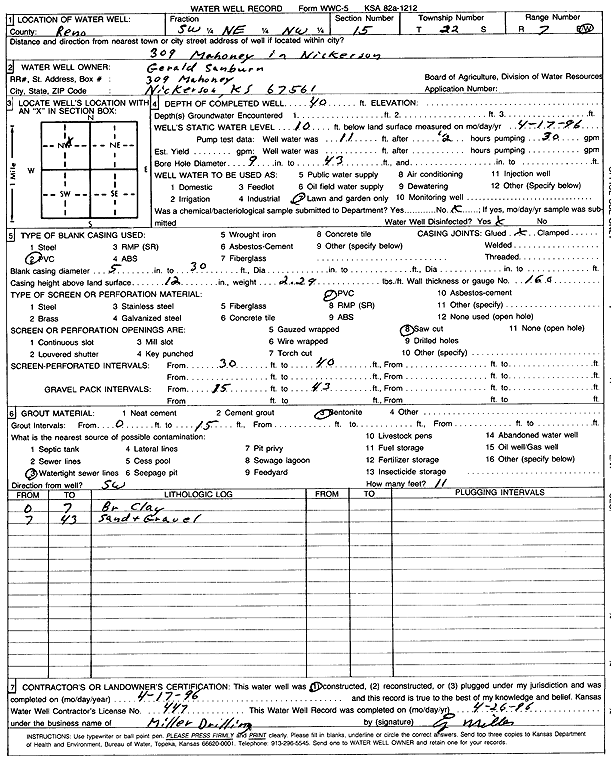 WATER WELL RECORD Form WWC-5 KSA 82a-1212
1 LOCATION OF WATER WELL: Fraction Section Number Township Number Range Number
County: Reno SW ¼ NE ¼ NW ¼ 15 T 22 S R 7 E/W
Distance and direction from nearest town or city street address of well if located within city?
309 Mahoney in Nickerson
2 WATER WELL OWNER: Gerald Sanburn
RR#, St. Address, Box # : 309 Mahoney Board of Agriculture, Division of Water Resources
City, State, ZIP Code : Nickerson, KS 67561 Application Number:
3 LOCATE WELL'S LOCATION WITH AN "X" IN SECTION BOX:
N
NW NE
W E
SW SE
S
1 Mile
4 DEPTH OF COMPLETED WELL 40 ft. ELEVATION:
Depth(s) Groundwater Encountered 1. ft. 2. ft. 3. ft.
WELL'S STATIC WATER LEVEL 10 ft. below land surface measured on mo/day/yr 4-17-96
Pump test data: Well water was 11 ft. after ½ hours pumping 30 gpm
Est. Yield gpm: Well water was ft. after hours pumping gpm
Bore Hole Diameter 9 in. to 43 ft., and in. to ft.
WELL WATER TO BE USED AS: 5 Public water supply 8 Air conditioning 11 Injection well
1 Domestic 3 Feedlot 6 Oil field water supply 9 Dewatering 12 Other (Specify below)
2 Irrigation 4 Industrial 7 Lawn and garden only 10 Monitoring well
Was a chemical/bacteriological sample submitted to Department? Yes No X; If yes, mo/day/yr sample was submitted Water Well Disinfected? Yes X No
5 TYPE OF BLANK CASING USED: 5 Wrought iron 8 Concrete tile CASING JOINTS: Glued X Clamped
1 Steel 3 RMP (SR) 6 Asbestos-Cement 9 Other (specify below) Welded
2 PVC 4 ABS 7 Fiberglass Threaded
Blank casing diameter 5 in. to 30 ft., Dia in. to ft., Dia in. to ft.
Casing height above land surface 12 in., weight 2.29 lbs./ft. Wall thickness or gauge No. 160
TYPE OF SCREEN OR PERFORATION MATERIAL: 7 PVC 10 Asbestos-cement
1 Steel 3 Stainless steel 5 Fiberglass 8 RMP (SR) 11 Other (specify)
2 Brass 4 Galvanized steel 6 Concrete tile 9 ABS 12 None used (open hole)
SCREEN OR PERFORATION OPENINGS ARE: 5 Gauzed wrapped 8 Saw cut 11 None (open hole)
1 Continuous slot 3 Mill slot 6 Wire wrapped 9 Drilled holes
2 Louvered shutter 4 Key punched 7 Torch cut 10 Other (specify)
SCREEN-PERFORATED INTERVALS: From 30 ft. to 40 ft., From ft. to ft.
From ft. to ft., From ft. to ft.
GRAVEL PACK INTERVALS: From 15 ft. to 43 ft., From ft. to ft.
From ft. to ft., From ft. to ft.
6 GROUT MATERIAL: 1 Neat cement 2 Cement grout 3 Bentonite 4 Other
Grout Intervals: From 0 ft. to 15 ft., From ft. to ft., From ft. to ft.
What is the nearest source of possible contamination: 10 Livestock pens 14 Abandoned water well
1 Septic tank 4 Lateral lines 7 Pit privy 11 Fuel storage 15 Oil well/Gas well
2 Sewer lines 5 Cess pool 8 Sewage lagoon 12 Fertilizer storage 16 Other (specify below)
3 Watertight sewer lines 6 Seepage pit 9 Feedyard 13 Insecticide storage
Direction from well? SW How many feet? 11
FROM TO LITHOLOGIC LOG FROM TO PLUGGING INTERVALS
0 7 Br Clay
7 43 Sand + Gravel
7 CONTRACTOR'S OR LANDOWNER'S CERTIFICATION: This water well was (1) constructed, (2) reconstructed, or (3) plugged under my jurisdiction and was
completed on (mo/day/year) 4-17-96 and this record is true to the best of my knowledge and belief. Kansas
Water Well Contractor's License No. 447 This Water Well Record was completed on (mo/day/yr) 4-26-96
under the business name of Miller Drilling by (signature) Miller
INSTRUCTIONS: Use typewriter or ball point pen. PLEASE PRESS FIRMLY and PRINT clearly. Please fill in blanks, underline or circle the correct answers. Send top three copies to Kansas Department
of Health and Environment, Bureau of Water, Topeka, Kansas 66620-0001. Telephone: 913-296-5545. Send one to WATER WELL OWNER and retain one for your records.